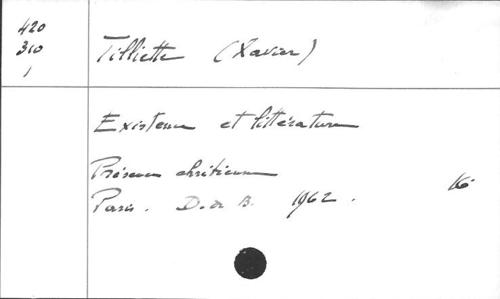 420
310
1
Tilliette (Xavier)
Existence et littérature
Présence chrétienne
Paris. D. de B. 1962.
16°